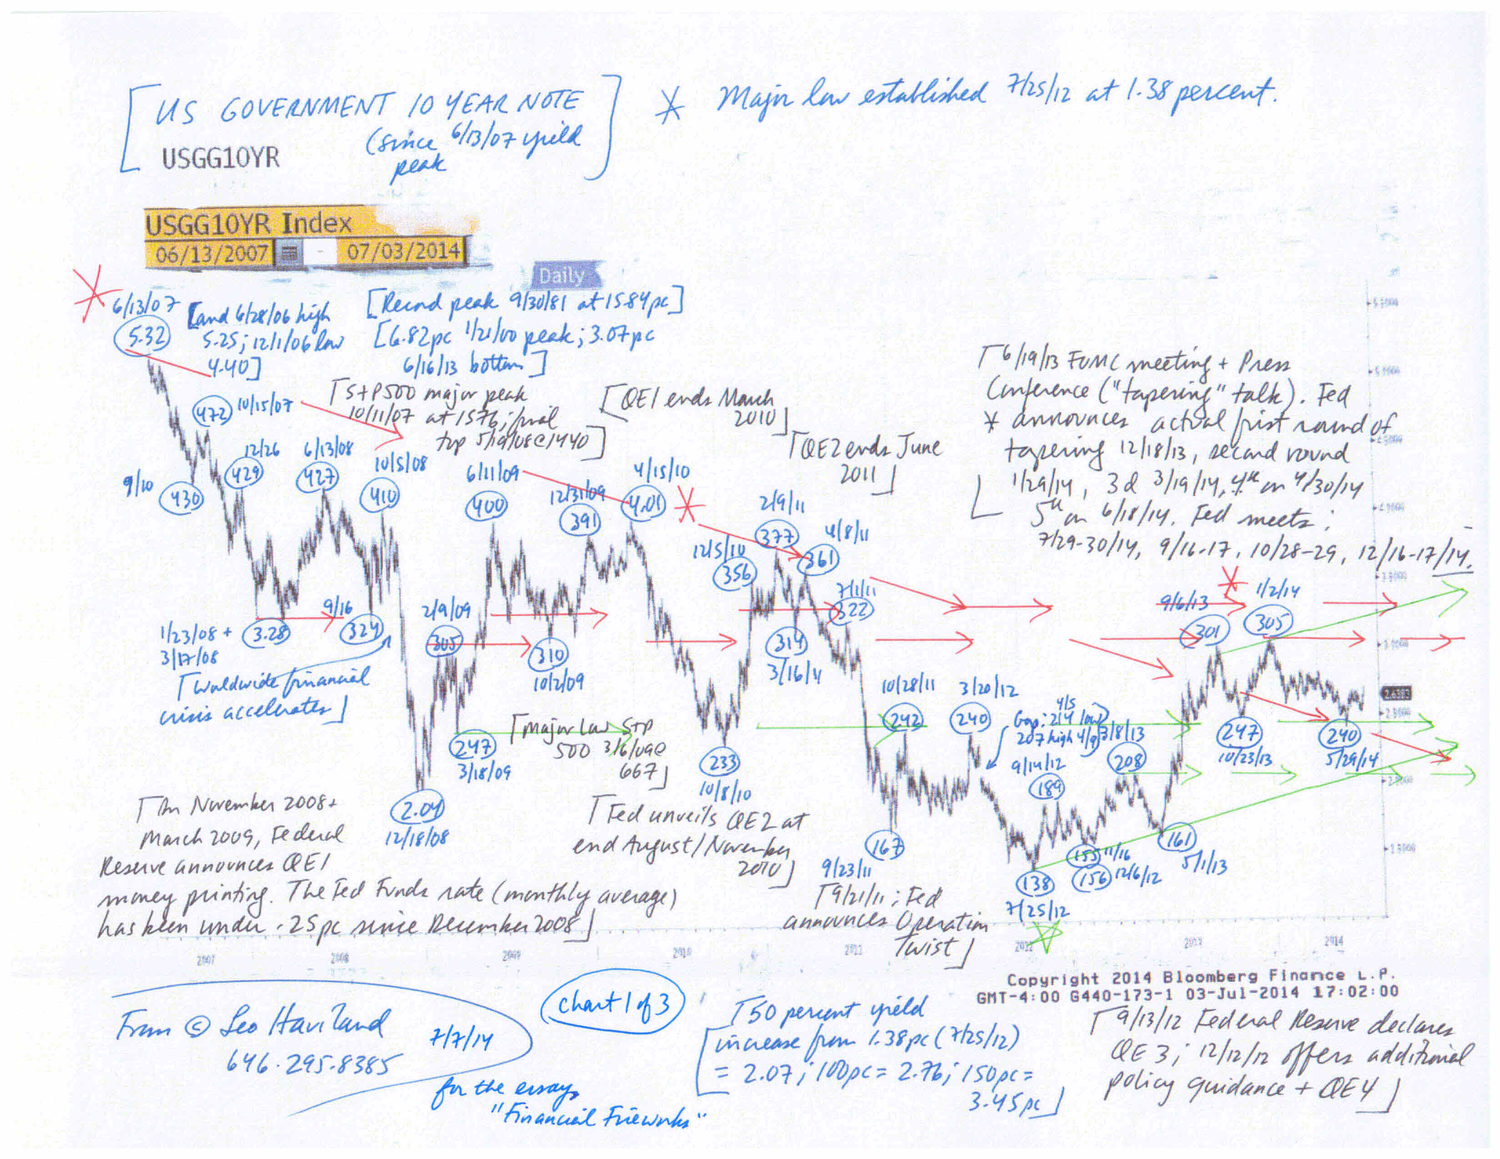 US GOVERNMENT 10 YEAR NOTE
(since 6/13/07 yield
peak
USGG10YR
* Major low established 7/25/12 at 1.38 percent.
USGG10YR Index
06/13/2007 - 07/03/2014
Daily
6/13/07
5.32
[and 6/28/06 high
5.25; 12/1/06 low
4.40]
[Record peak 9/30/81 at 15.84pc]
[6.82pc 1/21/00 peak; 3.07pc
6/16/13 bottom]
[S+P500 major peak
10/11/07 at 1576; final
top 5/19/08@1440]
[QE1 ends March
2010]
[QE2 ends June
2011]
[6/19/13 FOMC meeting + Press
Conference ("tapering" talk). Fed
* announces actual first round of
tapering 12/18/13, second round
1/29/14, 3d 3/19/14, 4th on 4/30/14
5th on 6/18/14. Fed meets:
7/29-30/14, 9/16-17, 10/28-29, 12/16-17/14.
472 10/15/07
12/26
429
6/13/08
427
10/5/08
410
9/10
430
6/11/09
400
12/31/09
391
4/15/10
4.01
2/9/11
377
4/8/11
361
12/5/10
356
7/1/11
322
9/6/13
301
1/2/14
305
1/23/08 +
3/17/08
3.28
9/16
324
2/9/09
305
310
10/2/09
314
3/16/4
[Worldwide financial
crisis accelerates]
247
3/18/09
[Major low S+P
500 3/6/09@
667]
233
10/8/10
10/28/11
242
3/20/12
240
4/5
Gap: 214 low
207 high 4/9
3/8/13
208
9/14/12
189
247
10/23/13
240
5/29/14
2.04
12/18/08
[In November 2008+
March 2009, Federal
Reserve announces QE1
money printing. The Fed Funds rate (monthly average)
has been under .25pc since December 2008]
[Fed unveils QE2 at
end August/November
2010]
167
9/23/11
[9/21/11; Fed
announces Operation
Twist]
138
7/25/12
155 11/16
156 12/6/12
161
5/1/13
2007 2008 2009 2010 2011 2012 2013 2014
Copyright 2014 Bloomberg Finance L.P.
GMT-4:00 G440-173-1 03-Jul-2014 17:02:00
From © Leo Haviland
646.295.8385
7/7/14
for the essay,
"Financial Fireworks"
chart 1 of 3
[50 percent yield
increase from 1.38pc (7/25/12)
= 2.07; 100pc = 2.76; 150pc =
3.45pc]
[9/13/12 Federal Reserve declares
QE3; 12/12/12 offers additional
policy guidance + QE4]